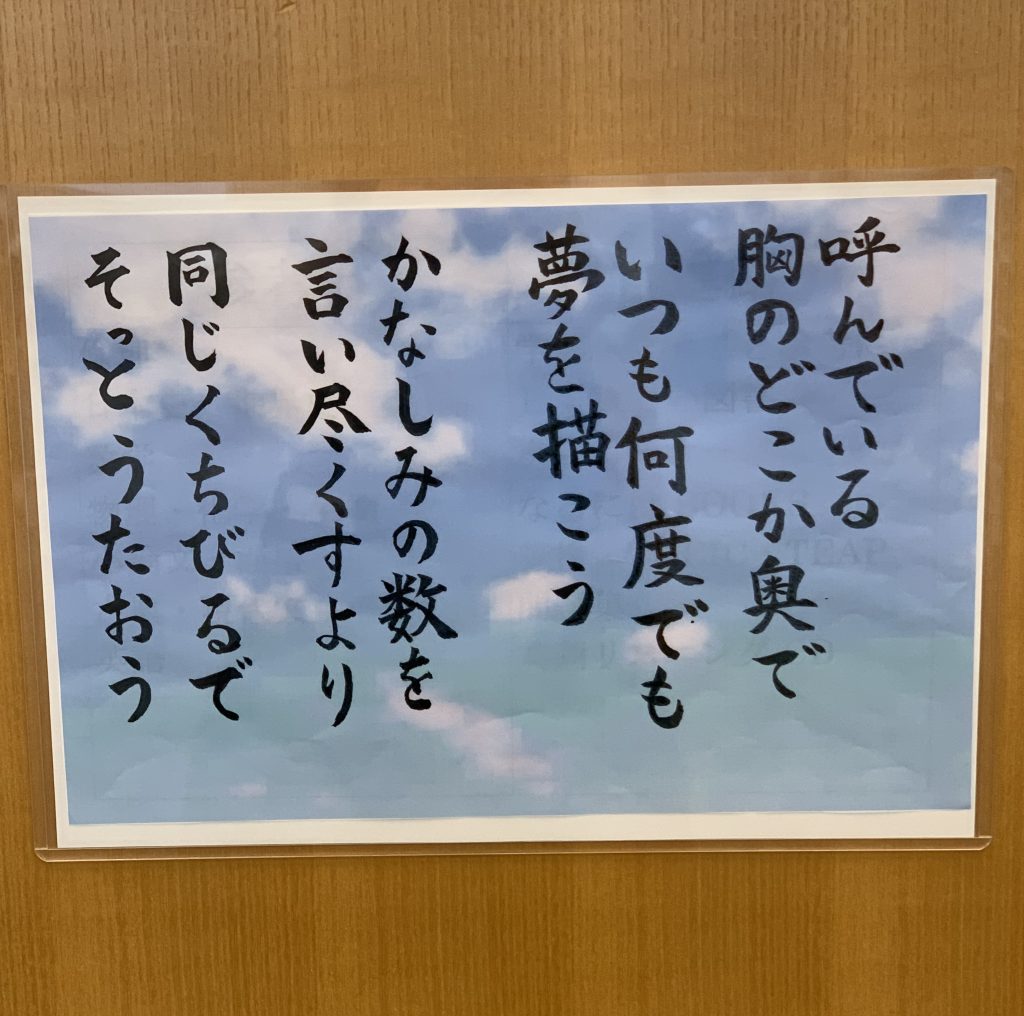 呼んでいる
胸のどこか奥で
いつも何度でも
夢を描こう
かなしみの数を
言い尽くすより
同じくちびるで
そっとうたおう